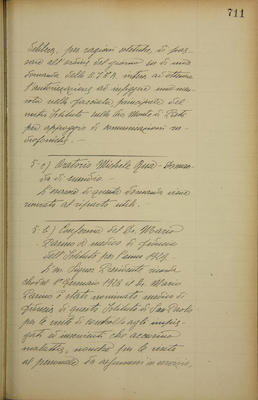 711
Delibera, per ragioni estetiche, di pas-
sare all'ordine del giorno su di una
domanda della S.T.E.A. intesa ad ottenere
l'autorizzazione ad infiggere una
nella facciata principale del
nostro Istituto sulla Via Monte di Pietà
per appoggio di comunicazioni
5 - a) Oratorio Michele - Doman-
da di sussidio. -
L'esame di questa domanda viene
rinviato al riparto utili. -
5. b) Conferma del Dr. Mario
a medico di fiducia
dell'Istituto per l'anno 1929. -
Il Signor Presidente ricorda
che dal 1° Gennaio 1928 il Dr. Mario
è stato nominato medico di
fiducia di questo Istituto di San Paolo
per le visite di controllo agli impie-
gati ed inservienti che accusino
malattia, nonché per le visite
al personale da assumersi in servizio,